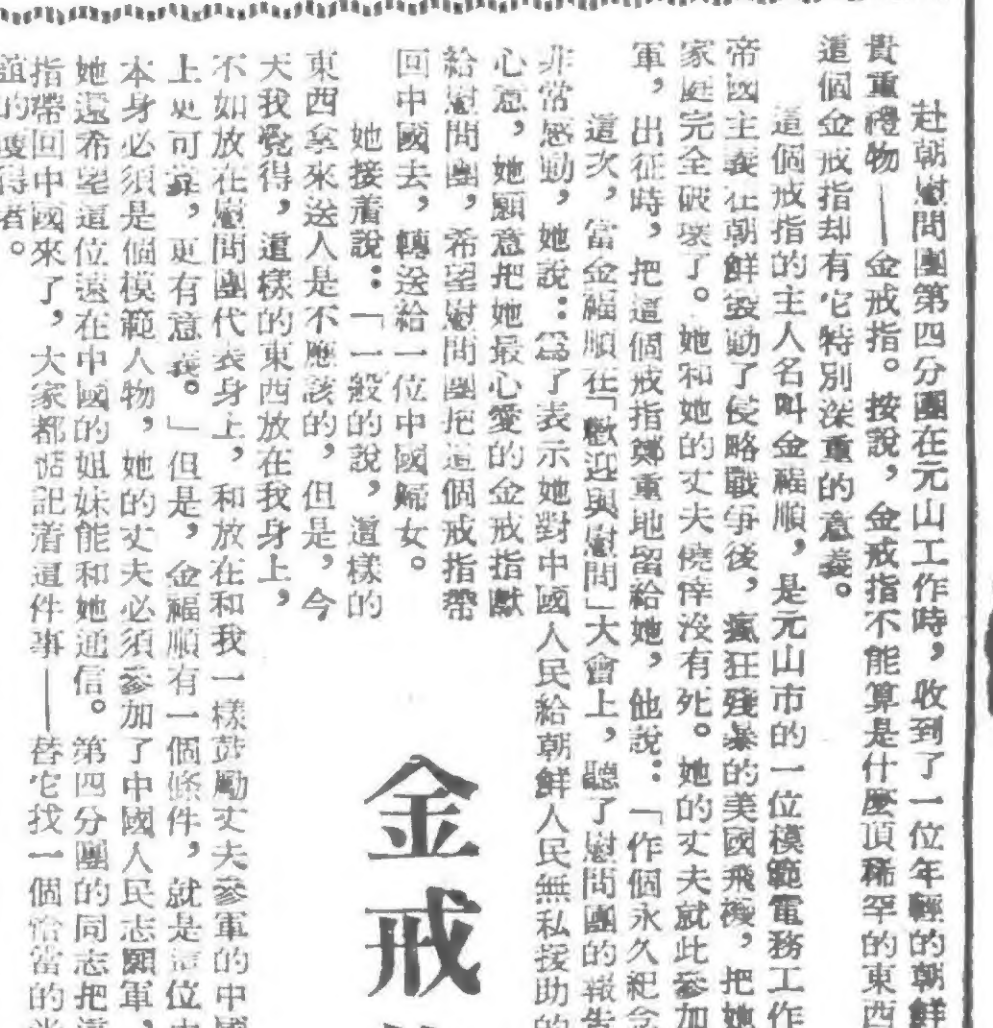 赴朝慰問團第四分團在元山工作時，收到了一位年輕的朝鮮
貴重禮物——金戒指。按說，金戒指不能算是什麼頂稀罕的東西
這個金戒指却有它特別深重的意義。
這個戒指的主人名叫金福順，是元山市的一位模範電務工作
帝國主義在朝鮮發動了侵略戰爭後，瘋狂殘暴的美國飛機，把她
家庭完全破壞了。她和她的丈夫僥倖沒有死。她的丈夫就此參加
軍，出征時，把這個戒指鄭重地留給她，他說：「作個永久紀念
這次，當金福順在「歡迎與慰問」大會上，聽了慰問團的報告
非常感動，她說：爲了表示她對中國人民給朝鮮人民無私援助的
心意，她願意把她最心愛的金戒指獻
給慰問團，希望慰問團把這個戒指帶
回中國去，轉送給一位中國婦女。
她接着說：「一般的說，這樣的
東西拿來送人是不應該的，但是，今
天我覺得，這樣的東西放在我身上，
不如放在慰問團代表身上，和放在和我一樣鼓勵丈夫參軍的中國
上更可靠，更有意義。」但是，金福順有一個條件，就是這位中
本身必須是個模範人物，她的丈夫必須參加了中國人民志願軍，
她還希望這位遠在中國的姐妹能和她通信。第四分團的同志把這
指帶回中國來了，大家都惦記着這件事——替它找一個恰當的光
誼的獲得者。
金戒